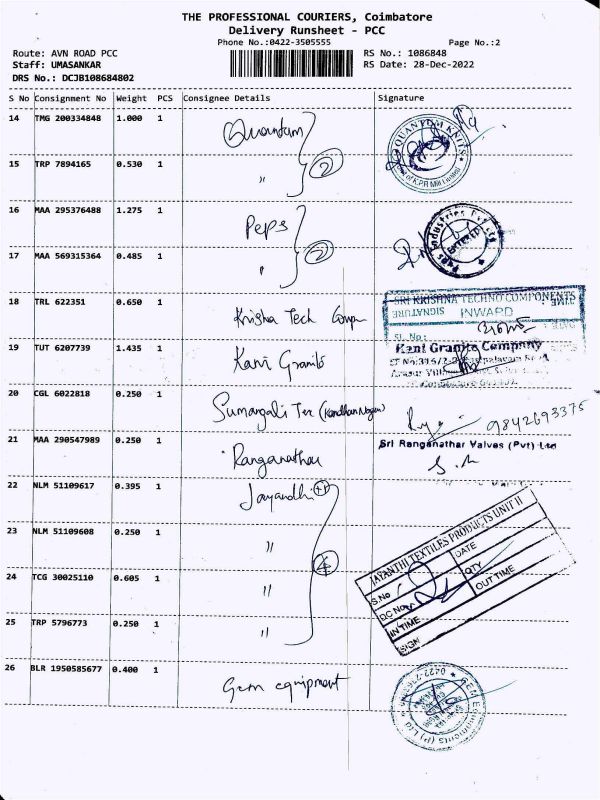 THE PROFESSIONAL COURIERS, Coimbatore
Delivery Runsheet - PCC
Phone No.:0422-3505555 Page No.:2
Route: AVN ROAD PCC RS No.: 1086848
Staff: UMASANKAR RS Date: 28-Dec-2022
DRS No.: DCJB108684802
S No Consignment No Weight PCS Consignee Details Signature
14 TMG 200334848 1.000 1 Quantum
QUANTUM KNITS
of K.P.R Mill Limited
15 TRP 7894165 0.530 1 " 2
16 MAA 295376488 1.275 1 Peps
Peps Industries Pvt Ltd
ENTERED
17 MAA 569315364 0.485 1 " 2
18 TRL 622351 0.650 1 Krisha Tech Comp
SRI KRISHNA TECHNO COMPONENTS
INWARD
SIGNATURE
TIME:
SL. No :
19 TUT 6207739 1.435 1 Kani Granito
Kani Granite Company
20 CGL 6022818 0.250 1 Sumangali Tex (Kandhan Nagar) 9842693375
21 MAA 290547989 0.250 1 Ranganathar
Sri Ranganathar Valves (Pvt) Ltd
22 NLM 51109617 0.395 1 Jayandhi
23 NLM 51109608 0.250 1 "
JAYANTHI TEXTILES PRODUCTS UNIT II
S.No
DATE
DC No
QTY
IN TIME
OUT TIME
SIGN
24 TCG 30025110 0.605 1 " 4
25 TRP 5796773 0.250 1 "
26 BLR 1950585677 0.400 1 Gem equipment